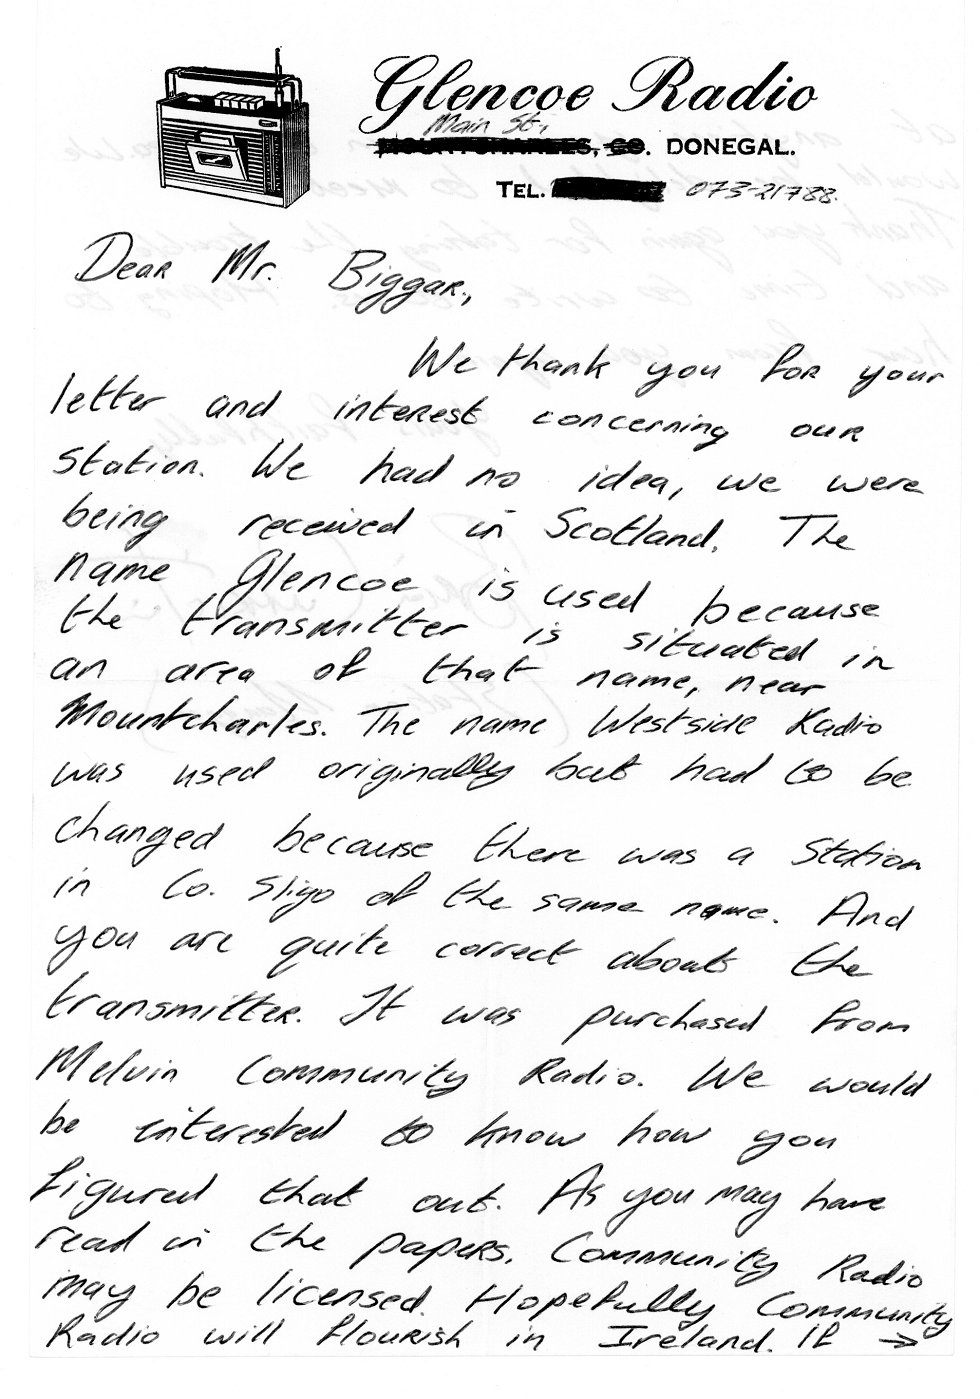 Glencoe Radio
Main St.,
MOUNTCHARLES, CO. DONEGAL.
TEL. 073-21788.
Dear Mr. Biggar.,
We thank you for your
letter and interest concerning our
Station. We had no idea, we were
being received in Scotland. The
name Glencoe is used because
the transmitter is situated in
an area of that name, near
Mountcharles. The name Westside Radio
was used originally but had to be
changed because there was a Station
in Co. Sligo of the same name. And
you are quite correct about the
transmitter. It was purchased from
Melvin Community Radio. We would
be interested to know how you
figured that out. As you may have
read in the papers, Community Radio
may be licensed. Hopefully Community
Radio will flourish in Ireland. If →